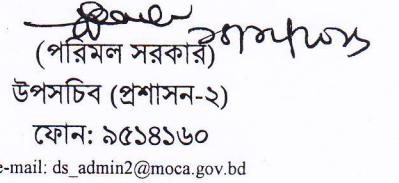 (পরিমল সরকার)
উপসচিব (প্রশাসন-২)
ফোন: ৯৫১৪১৬০
e-mail: ds_admin2@moca.gov.bd